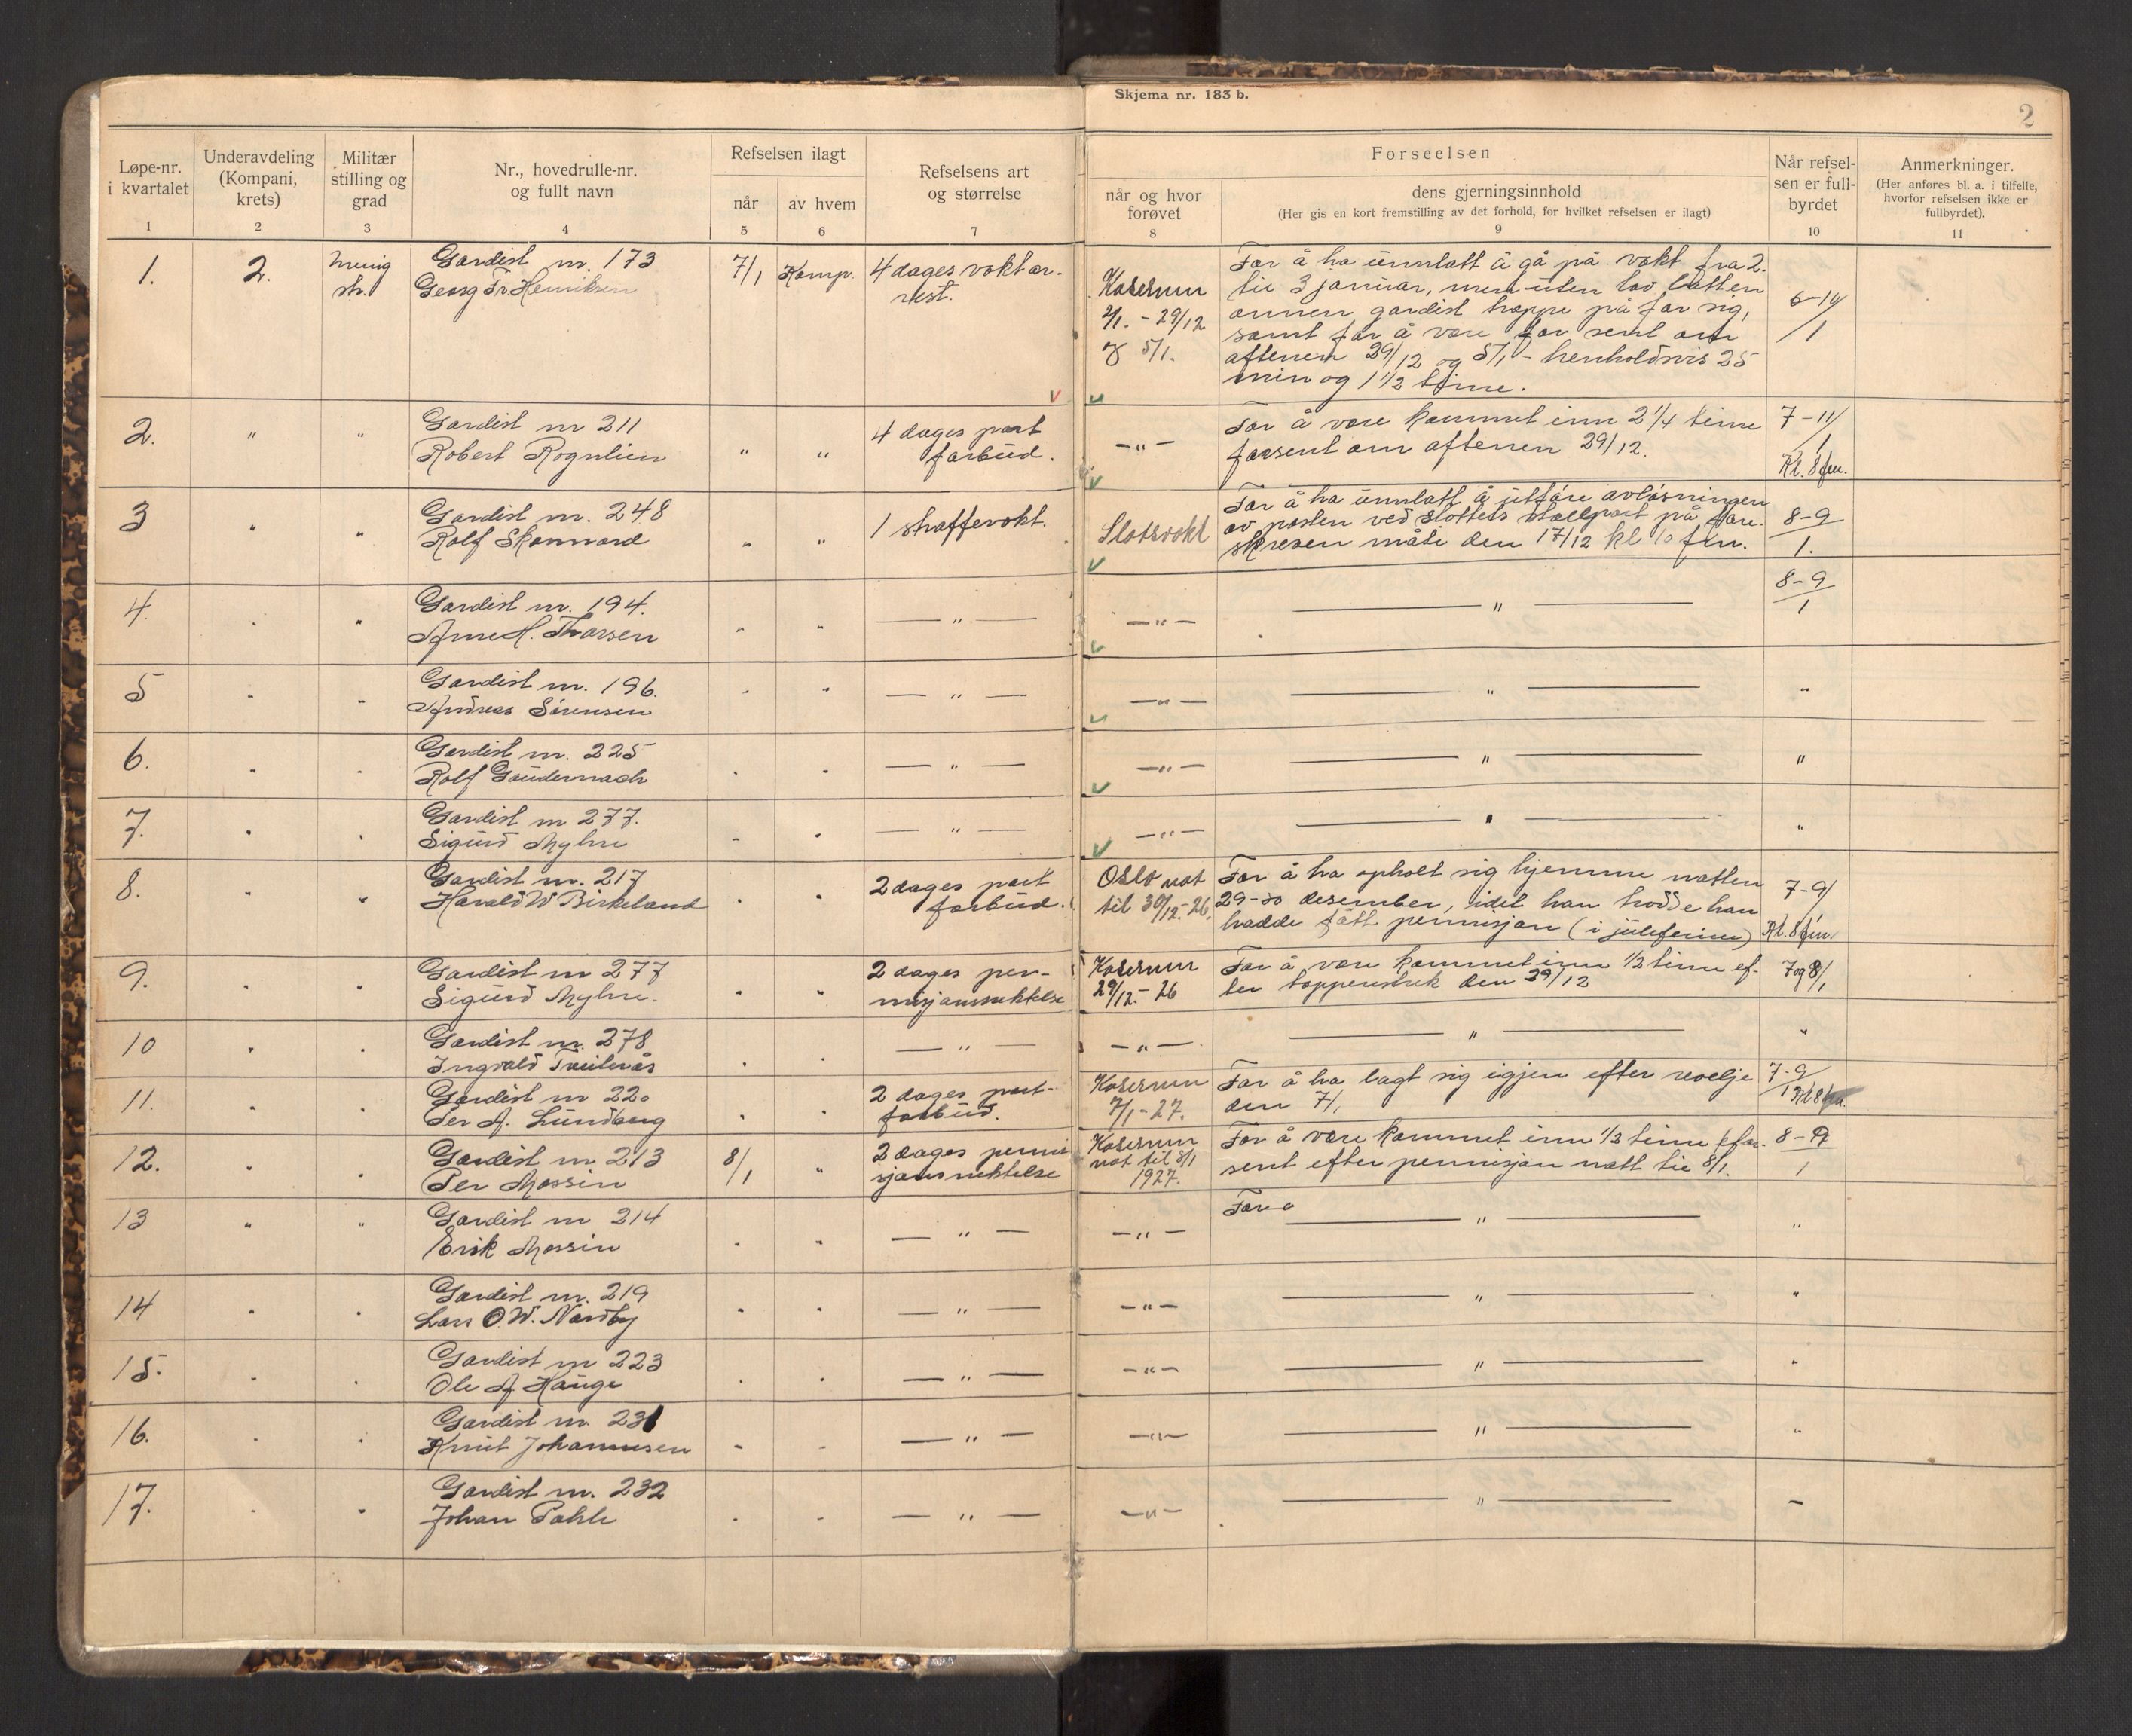 Skjema nr. 183 b.
2
Løpe-nr. i kvartalet 1
Underavdeling (Kompani, krets) 2
Militær stilling og grad 3
Nr., hovedrulle-nr. og fullt navn 4
Refselsen ilagt
når 5
av hvem 6
Refselsens art og størrelse 7
Forseelsen
når og hvor forøvet 8
dens gjerningsinnhold
(Her gis en kort fremstilling av det forhold, for hvilket refselsen er ilagt)
9
Når refsel-
sen er full-
byrdet
10
Anmerkninger.
(Her anføres bl. a. i tilfelle,
hvorfor refselsen ikke er
fullbyrdet).
11
1. 2. menig str. Gardist nr. 173 7/1 Komp. 4 dages vokt ar-
Georg Fr Henriksen rest.
Kasernen
2/1. - 29/12
og 5/1.
For å ha unnlatt å gå på vakt fra 2.
til 3 januar, men uten lov latt en
annen gardist troppe på for sig,
samt for å være for sent om
aftenen 29/12 og 5/1 - henholdsvis 25
min og 1 1/2 time.
6-10/1
2. " " Gardist nr 211 " " 4 dages port
Robert Rognlien forbud.
-"- For å være kommet inn 2 1/4 time 7-11/1
forsent om aftenen 29/12. Kl. 8 fm.
3 " " Gardist nr. 248 " " 1 straffevakt.
Rolf Skonnord
Slotsvakt
For å ha unnlatt å utføre avløsningen
av posten ved slottets stallport på fore-
skreven måte den 17/12 kl 10 fm.
8-9
1.
4. " " Gardist nr. 194. " " — " —
Arne H. Thorsen
-"- — " — 8-9
1
5 " " Gardist nr. 196. " " — " —
Andreas Sörensen
-"- — " — "
6. " " Gardist nr. 225 " " — " —
Rolf Gaudernach
-"- — " — "
7. " " Gardist nr 277. " " — " —
Sigurd Myhre
-"- — " — "
8. " " Gardist nr. 217 " " 2 dages port
Harald W Birkeland forbud.
Oslo nat
til 30/12.-26.
For å ha opholt sig hjemme natten
29-30 desember, idet han trodde han
hadde fått permisjon (i juleferien)
7-9/1
Kl. 8 fm.
9. " " Gardist nr 277 " " 2 dages per-
Sigurd Myhre. misjonsnektelse
Kasernen
29/12.- 26
For å være kommet inn 1/2 time ef-
ter tappenstrek den 29/12
7 og 8/1
10 " " Gardist nr. 278 " " — " —
Ingvald
-"- — " — "
11. " " Gardist nr 220 " " 2 dages port-
Per A. Lundberg forbud.
Kasernen
7/1-27.
For å ha lagt sig igjen efter revelje
den 7/1
7-9
1 Kl 8
12. " " Gardist nr 213 8/1 " 2 dages permi
Per Mossin sjonsnektelse
Kasernen
nat til 8/1
1927.
For å være kommet inn 1/2 time for-
sent efter permisjon natt til 8/1.
8-9
1
13 " " Gardist nr 214 " " — " —
Erik Mossin
-"- For å — " — "
14 " " Gardist nr. 219 " " — " —
Lars O.W. Nordby
-"- — " — "
15. " " Gardist nr 223 " " — " —
Ole A Hauge
-"- — " — "
16. " " Gardist nr 231 " " — " —
Knut Johannesen
-"- — " — "
17. " " Gardist nr. 232 " " — " —
Johan Pahle
-"- — " — -